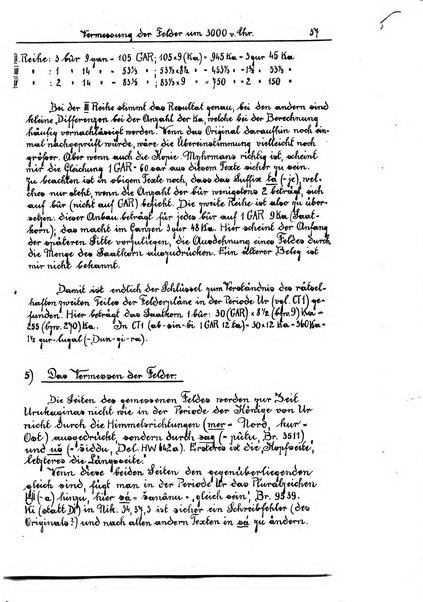 Vermessung der Felder um 3000 v. Chr. 37
Reihe: 3 bür 9 gan - 105 GAR; 105 x 9 (Ka) = 945 Ka - 3 gur 45 Ka
" : 1 " 14 " - 53⅓ " ; 53⅓ x 8½ " - 453⅓ " - 1½ " 3⅓ "
" : 2 " 14 " - 83⅓ " ; 83⅓ x 9 " = 750 " = 2 " 150 "
Bei der III Reihe stimmt das Resultat genau, bei den andern sind
kleine Differenzen bei der Anzahl der Ka, welche bei der Berechnung
häufig vernachlässigt worden. Wenn das Original daraufhin noch ein-
mal nachgeprüft würde, wäre die Übereinstimmung vielleicht noch
größer. Aber wenn auch die Kopie Myhrmans richtig ist, scheint
mir die Gleichung 1 GAR - 60 sar aus diesem Texte sicher zu sein.
Zu beachten ist in obigem Texte noch, dass das Suffix ta (- je), wel-
ches nur steht, wenn die Anzahl der bür wenigstens 2 beträgt, sich
auf bür (nicht auf GAR) bezieht. Die zweite Reihe ist also zu über-
setzen: dieser Anbau beträgt für jedes bür auf 1 GAR 9 Ka (Saat-
korn); das macht im Ganzen 3 gur 48 Ka. Hier scheint der Anfang
der späteren Sitte vorzuliegen, die Ausdehnung eines Feldes durch
die Menge des Saatkorn auszudrücken. Ein älterer Beleg ist
mir nicht bekannt.
Damit ist endlich der Schlüssel zum Verständnis des rätsel-
haften zweiten Teiles der Felderpläne in der Periode Ur (vgl. CT 1) ge-
funden. Hier beträgt das Saatkorn 1 bür: 30 (GAR) x 8½ (bzw. 9) Ka -
255 (bzw. 270) Ka. In CT 1 (ab-sin-bi 1 GAR 12 ka) = 30 x 12 Ka - 360 Ka -
1⅕ gur-lugal (- Dun-gi-ra).
5) Das Vermessen der Felder.
Die Seiten des gemessenen Feldes werden zur Zeit
Urukaginas nicht wie in der Periode der Könige von Ur
nicht durch die Himmelsrichtungen (mer - Nord, kur -
Ost) ausgedrückt, sondern durch sag (- pūtu, Br. 3511)
und uš (- šiddu, Del. HW 642 a). Ersteres ist die "Kopfseite,
letzteres die Längsseite".
Wenn diese beiden Seiten den gegenüberliegenden
gleich sind, fügt man in der Periode Ur das Pluralzeichen
(- a) hinzu, hier sá = šanânu "gleich sein", Br. 9539.
Ki (statt Di) in Nik. 34,37,3 ist sicher ein Schreibfehler (des
Originals?) und nach allen andern Texten in sá zu ändern.